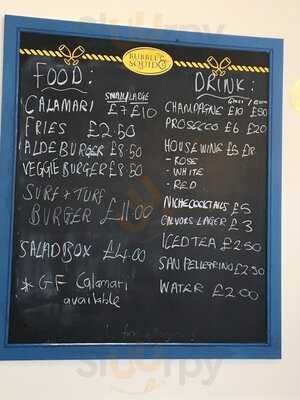 BUBBLE &
SQUID
FOOD:
SMALL/LARGE
CALAMARI £7 £10
FRIES £2.50
ALDEBURGER £8.50
VEGGIE BURGER £8.50
SURF + TURF
BURGER £11.00
SALAD BOX £4.00
* GF Calamari
available
DRINK:
CHAMPAGNE £10 £50
PROSECCO £6 £20
HOUSE WINE £5 £18
- ROSE
- WHITE
- RED
NICHE COCKTAILS £5
CALVORS LAGER £3
ICED TEA £2.50
SAN PELLEGRINO £2.30
WATER £2.00
sluurpy